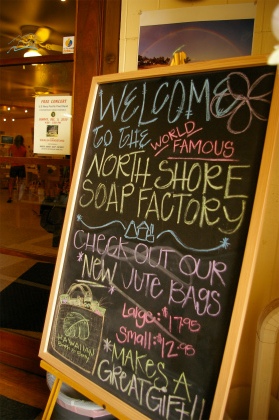 WELCOME
TO THE
WORLD
FAMOUS
NORTH SHORE
SOAP FACTORY
CHECK OUT OUR
*NEW JUTE BAGS
Large: $17.95
Small: $12.95
*MAKES A
GREAT GIFT!!
HAWAIIAN